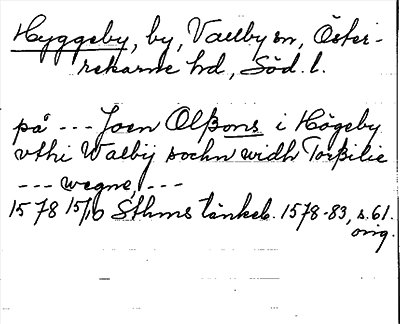 Hyggeby, by, Vallby sn, Öster-
rekarne hd., Söd. l.
på --- Joen Olßons i Högeby
vthi Walbij sochn widh Torßilie
--- wegne, ---
1578 15/10 Sthms tänkeb. 1578-83, s. 61.
orig.